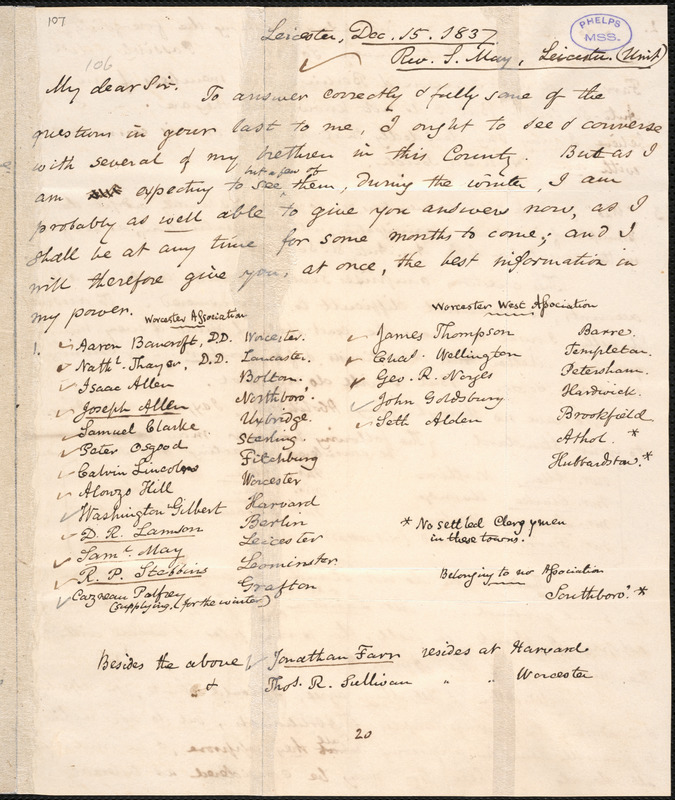 107
PHELPS
MSS.
Leicester, Dec. 15. 1837
Rev. S. May, Leicester. (Unit)
106
My dear Sir.
To answer correctly & fully some of the
questions in your last to me, I ought to see & converse
with several of my brethren in this County. But as I
but a few of
am expecting to see them, during the winter, I am
probably as well able to give you answers now, as I
shall be at any time for some months to come; and I
will therefore give you, at once, the best information in
my power.
Worcester Association
1. Aaron Bancroft, D.D. Worcester.
Nathl. Thayer, D.D. Lancaster.
Isaac Allen Bolton.
Joseph Allen Northboro'.
Samuel Clarke Uxbridge.
Peter Osgood Sterling.
Calvin Lincoln Fitchburg
Alonzo Hill Worcester
Washington Gilbert Harvard
D. R. Lamson Berlin
Saml. May Leicester
R. P. Stebbins Leominster
Cazneau Palfrey Grafton
(supplying, (for the winter)
Worcester West Association
James Thompson Barre.
Chas. Wellington Templeton.
Geo. R. Noyes Petersham.
John Goldsbury Hardwick.
Seth Alden Brookfield
Athol. *
Hubbardston. *
* No settled Clergymen
in these towns.
Belonging to no Association
Southboro'. *
Besides the above, Jonathan Farr resides at Harvard
" & Thos. R. Sullivan " " Worcester
20